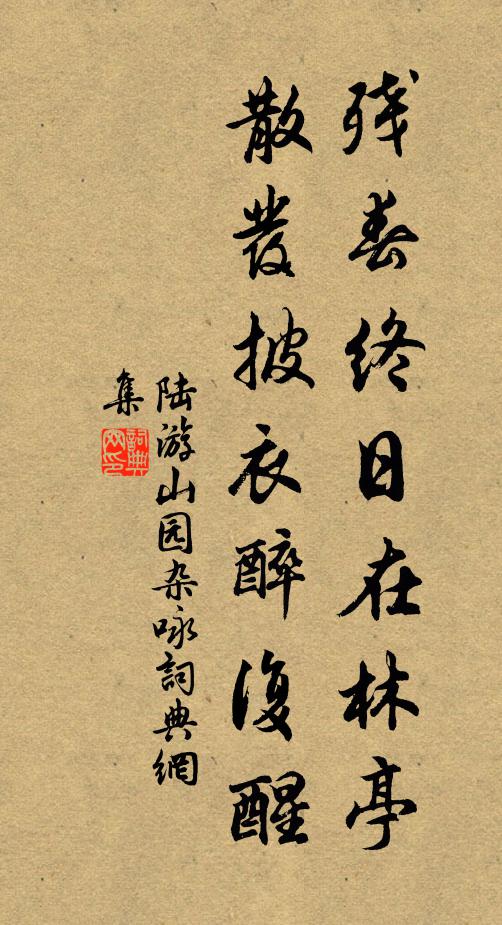 残春终日在林亭
散发披衣醉復醒
陆游山园杂咏詞典網
集
詞典
网印